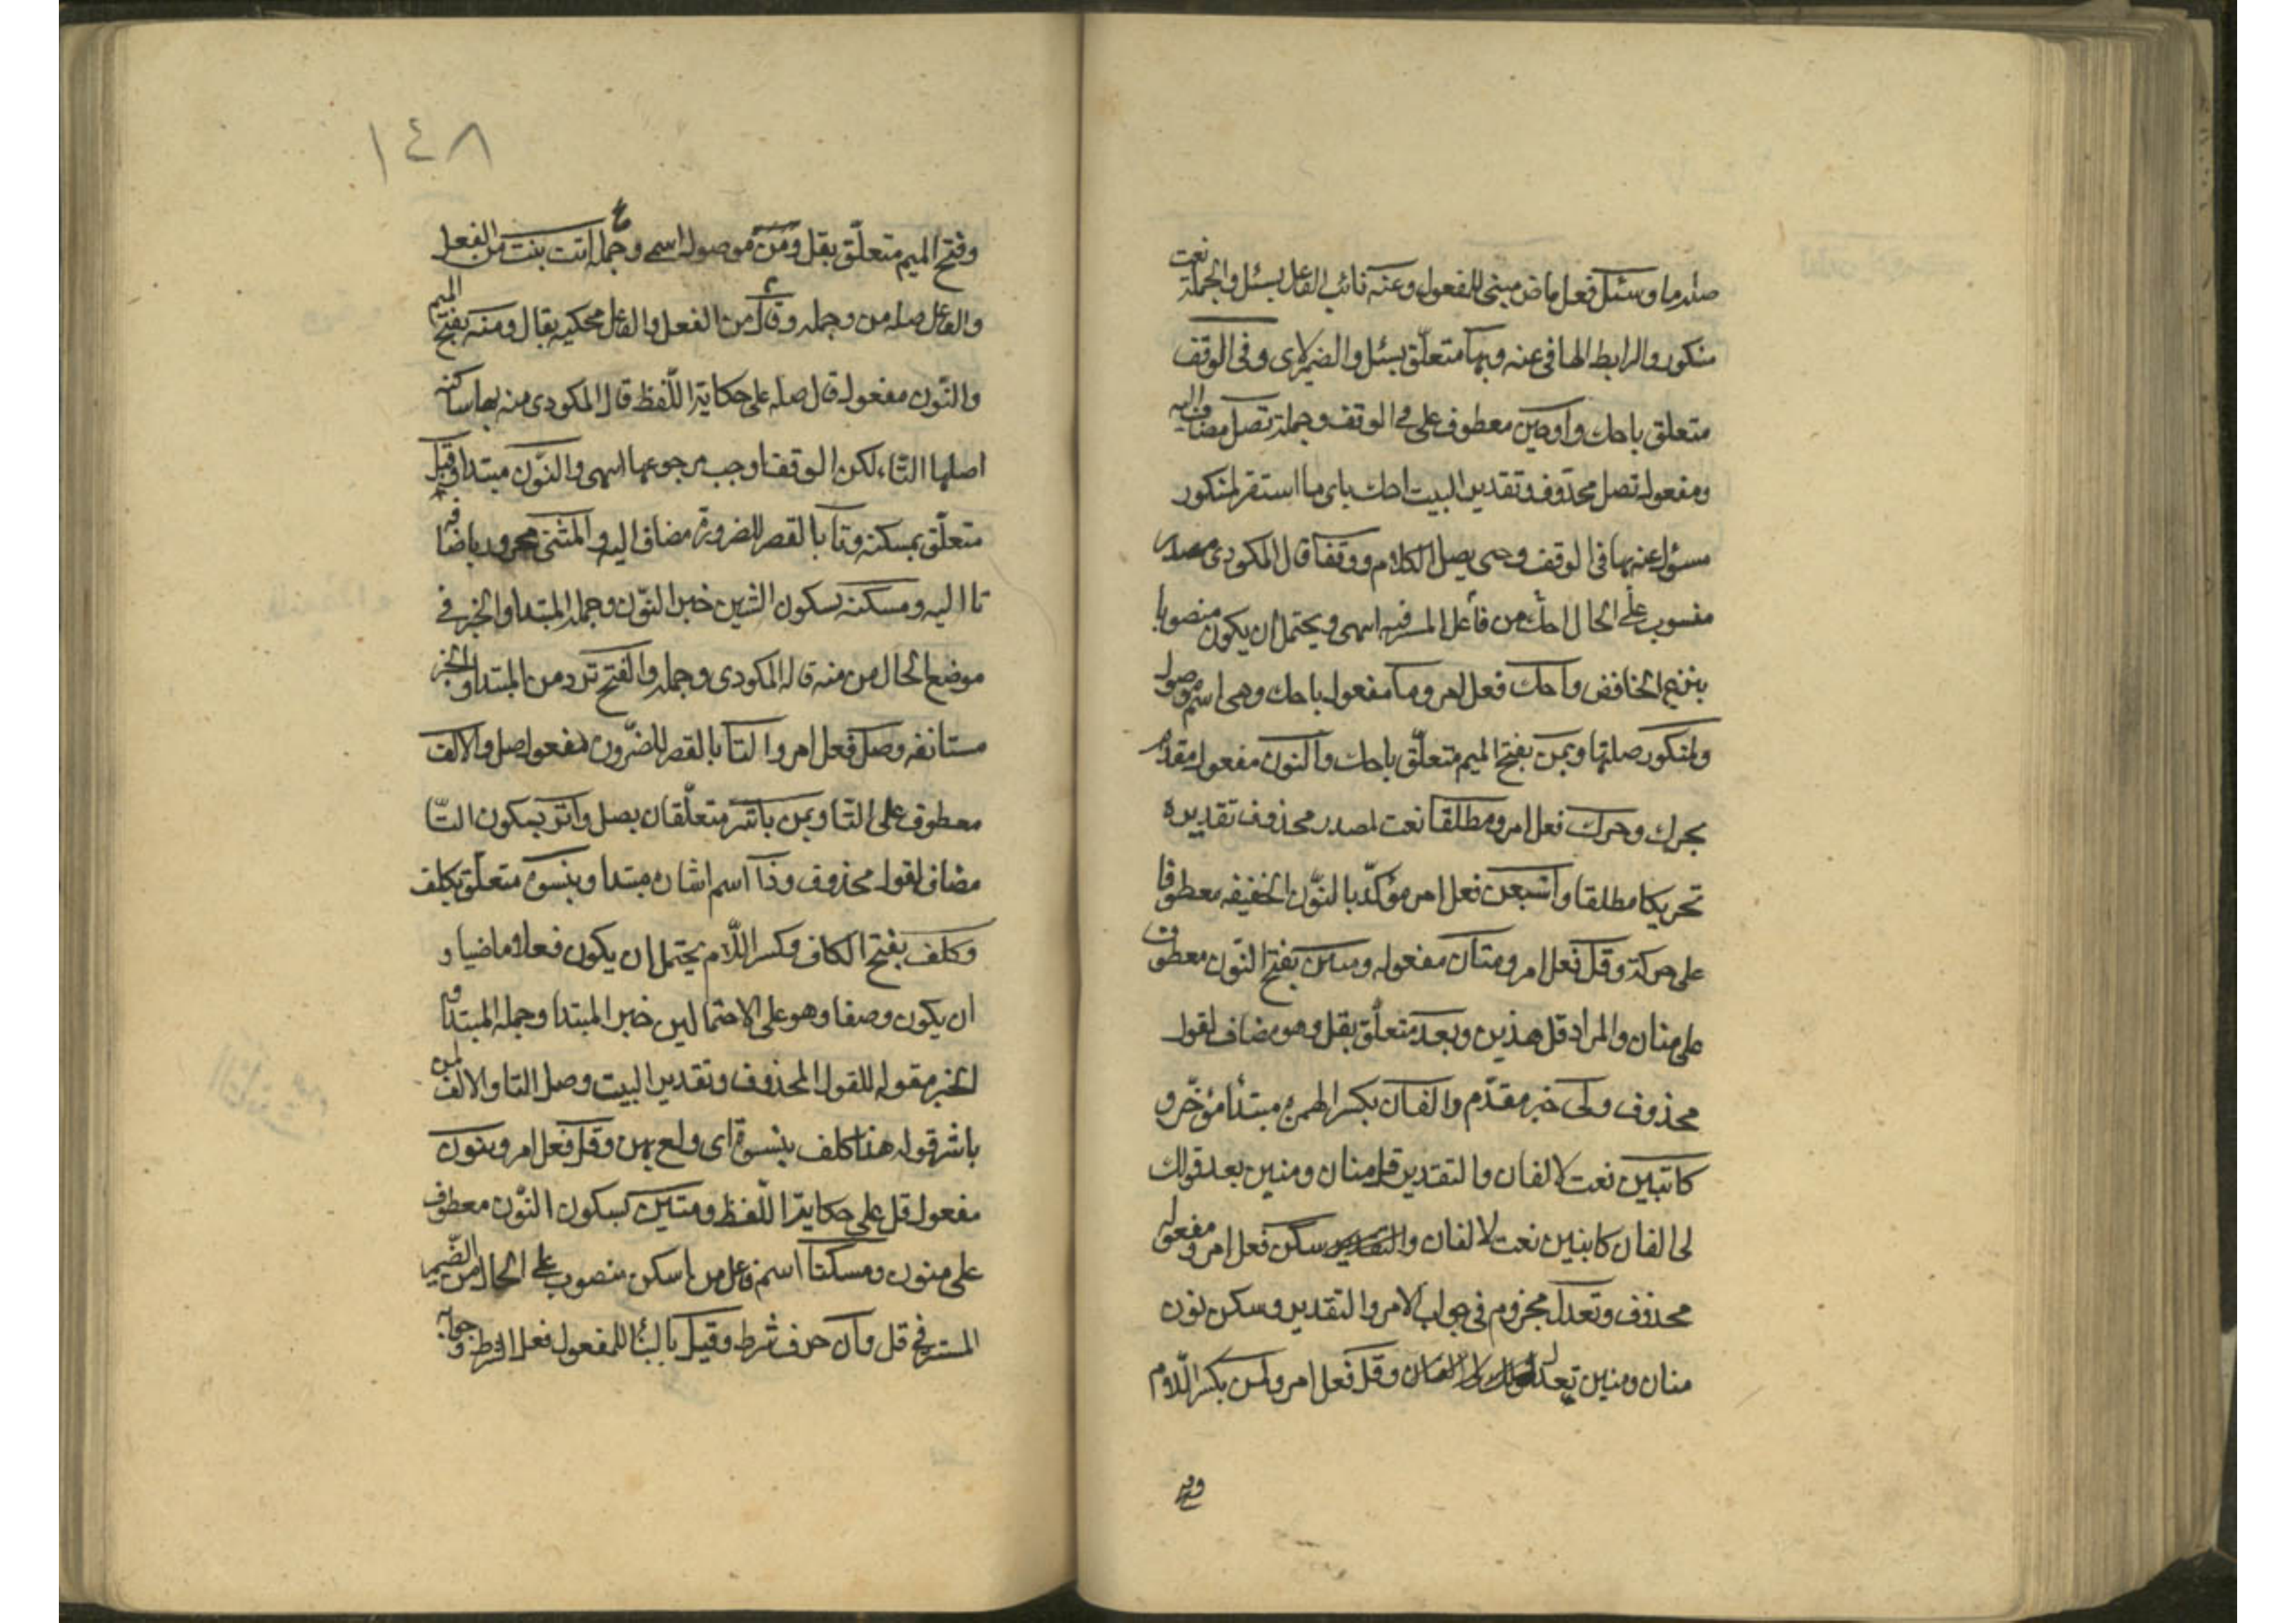 صلة ما وسئل فعل ماض مبني للمفعول وعنه نائب الفاعل بسئل والجملة نعت
منكور والرابط الها في عنه وبها متعلق بسئل والضمير لاي وفي الوقف
متعلق باحك واو حين معطوف على في الوقف وجملة تصل مضاف اليه
ومفعول تصل محذوف وتقدير البيت احك باى ما استقر لمنكور
مسؤل عنه بها في الوقف وحين يصل الكلام ووقفا قال المكودى مصدر
منصوب على الحال احك من فاعل المستتر فيه انتهى ويحتمل ان يكون منصوبا
بنزع الخافض واحك فعل امر وما مفعول باحك وهى اسم موصول
ولمنكور صلتها وبمن بفتح الميم متعلق باحك والنون مفعول مقدم
بحرك وحرك فعل امر ومطلقا نعت لمصدر محذوف تقديره
تحريكا مطلقا واشبعن فعل امر مؤكد بالنون الخفيفه معطوفا
على حركة وقل فعل امر ومنان مفعوله ومنين بفتح النون معطوف
على منان والمراد قل هذين وبعد متعلق بقل وهو مضاف لقول
محذوف ولى خبر مقدم والفان بكسر الهمزة مبتدأ مؤخر و
كابنين نعت لالفان والتقدير قل منان ومنين بعد قولك
لى الفان كابنين نعت لالفان والتقدير سكن فعل امر ومفعوله
محذوف وتعدل مجزوم في جواب الامر والتقدير وسكن نون
منان ومنين تعدل وقل فعل امر ولمن بكسر اللام
١٤٨
وفتح الميم متعلق بقل ومن موصول اسمى وجملة اتت بنت من الفعل
والفاعل صلة من وجملة وقال من الفعل والفاعل محكية بقال ومنه بفتح الميم
والنون مفعول قال صله على حكاية اللفظ قال المكودى منه بها ساكنه
اصلها التاء لكن الوقف اوجب رجوعها انتهى والنون مبتدا وقبل
متعلق بمسكنه وتا بالقصر للضرورة مضاف اليه والمثنى مجرور باضافة
تا اليه ومسكنه بسكون الشين خبر النون وجملة المبتدا والخبر في
موضع الحال من منه قاله المكودى وجملة والفتح نزر من المبتدا والخبر
مستانفه وصل فعل امر والتا بالقصر للضرورة مفعول صل والالف
معطوف على التا وبمن باثر متعلقان بصل واثر بسكون الثا
مضاف لقول محذوف وذا اسم اشارة مبتدا وبنسوة متعلق بكلف
وكلف بفتح الكاف وكسر اللام يحتمل ان يكون فعلا ماضيا و
ان يكون وصفا وهو على الاحتمالين خبر المبتدا وجملة المبتدا و
الخبر مقوله للقول المحذوف وتقدير البيت وصل التا والالف بمن
باثر قوله هذا كلف بنسوة اى ولع بهن وقل فعل امر ومنون
مفعول قل على حكاية اللفظ ومنين بسكون النون معطوف
على منون ومسكنا اسم فاعل من اسكن منصوب على الحال من الضمير
المستتر في قل وان حرف شرط وقيل بالبنا للمفعول فعل الشرط وجوابه